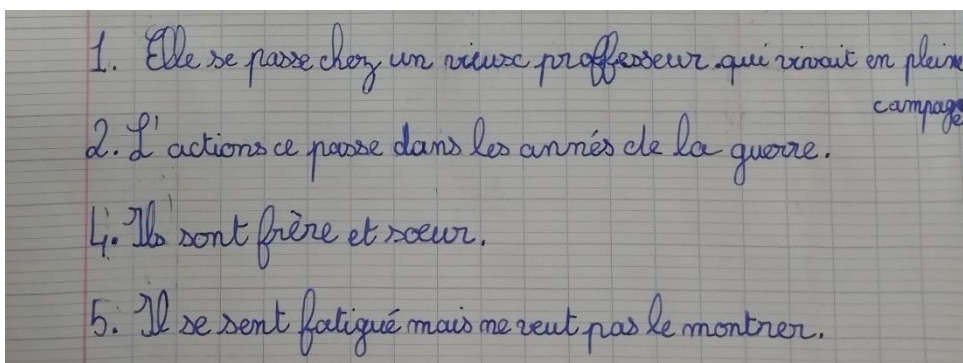 1. Elle se passe chez un vieux proffesseur qui vivait en pleine
campage
2. L'actions ce passe dans les annés de la guerre.
4. Ils sont frère et soeur.
5. Il se sent fatigué mais ne veut pas le montrer.